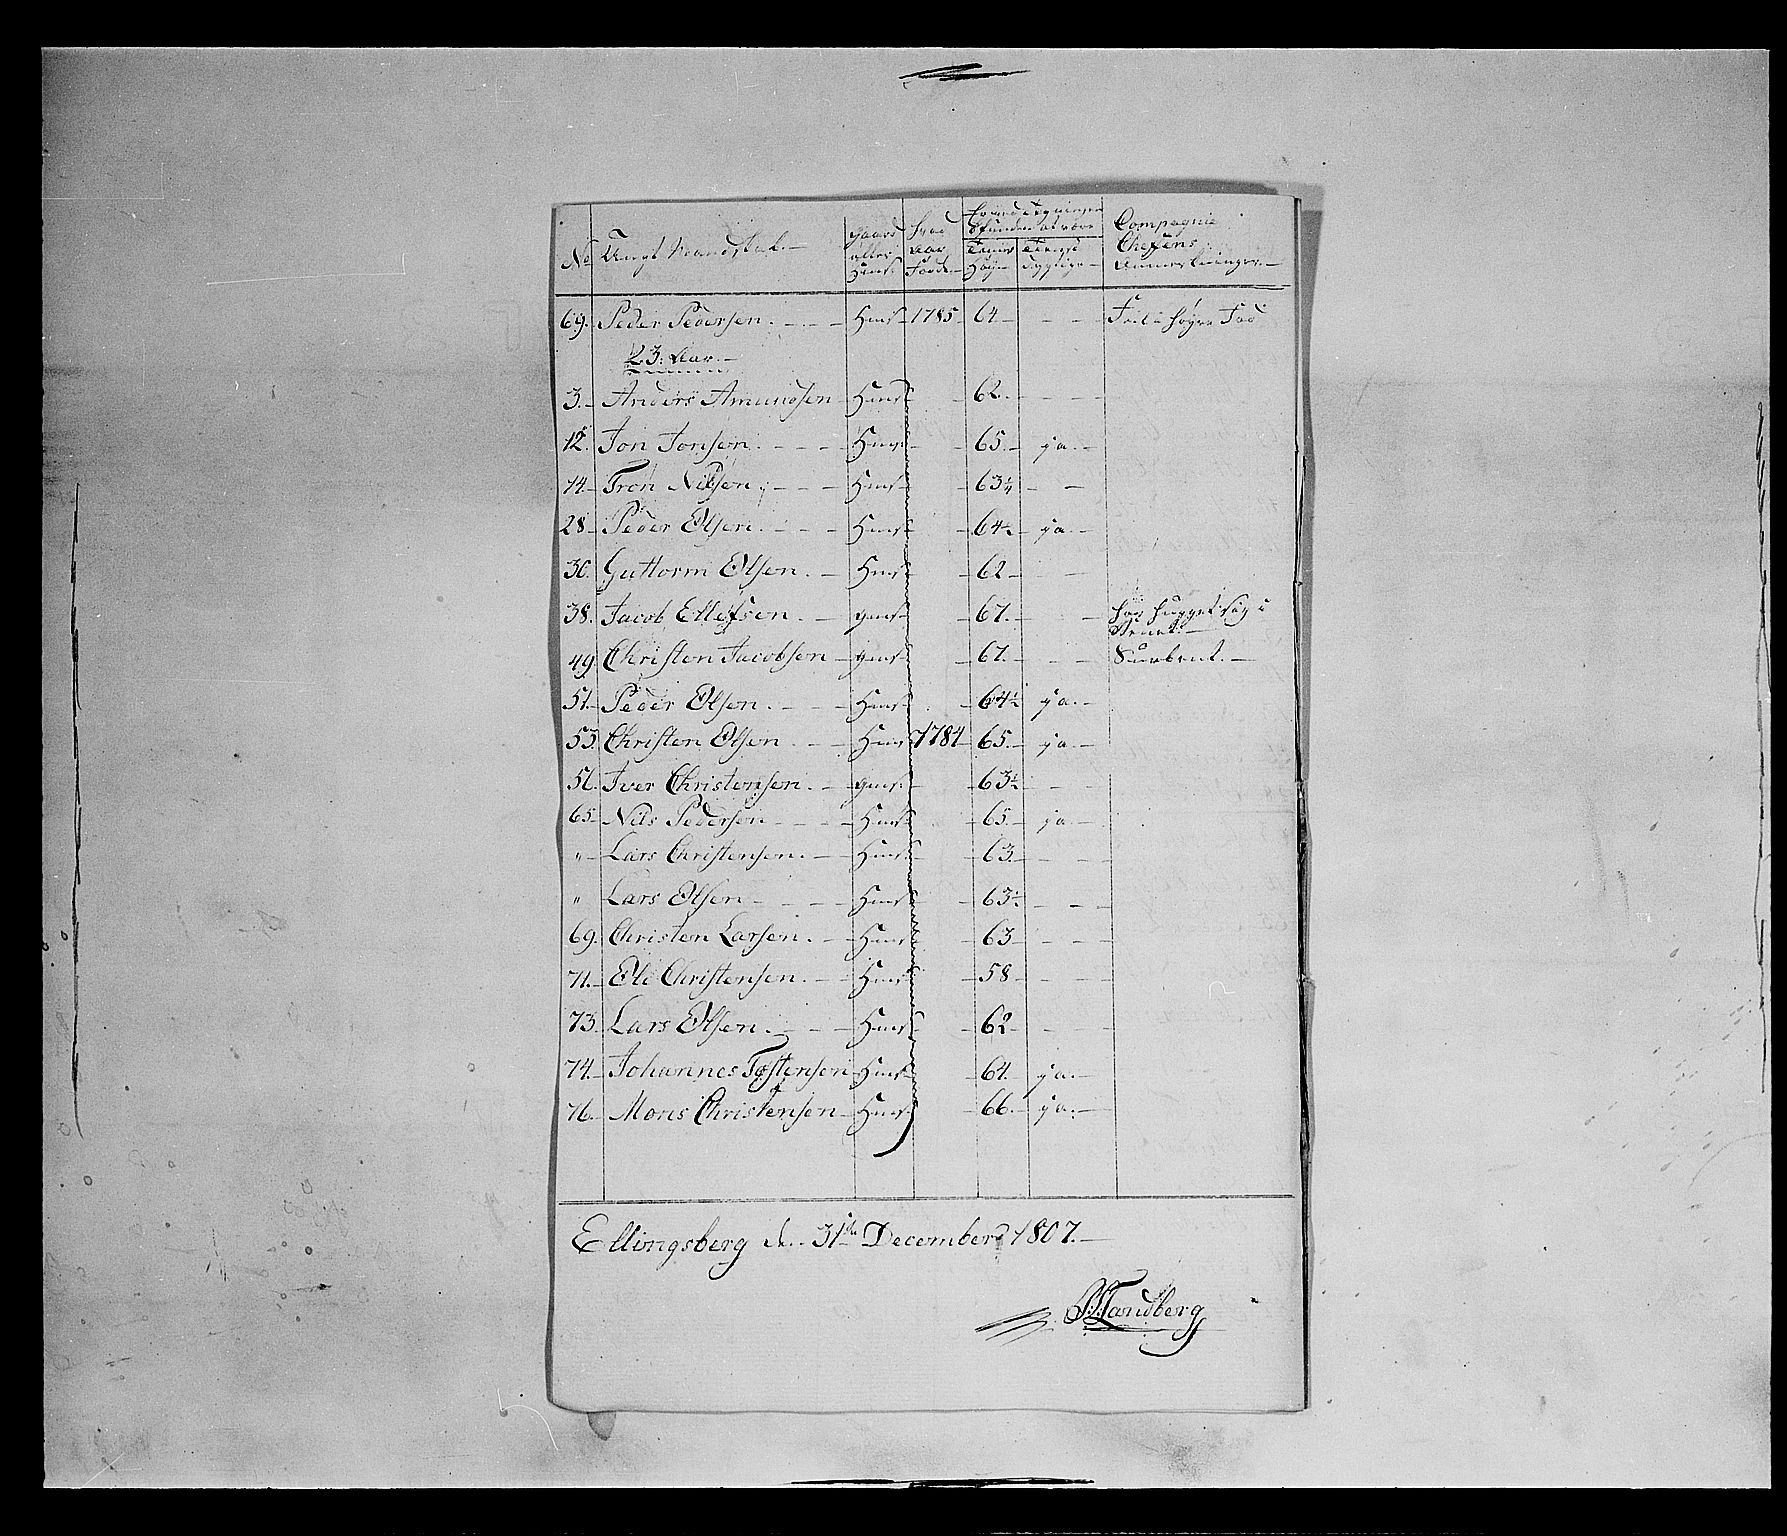 No Ungt Mandskab.— Gaard eller Huus Hvad Aar Fødde.— Compagnie Chefens Anmerkninger.—
69. Peder Pedersen. Huus 1785 64 Feil i høyre Fod
23: Aar.—
3. Anders Amundsen Huus 62.
12. Jon Jonsen Huus 65. ja.
14. Tron Nilsen Huus 63¼
28. Peder Olsen Huus 64½ ja.
30. Guttorm Olsen. Huus 62
38. Jacob Ellefsen. Gaus 67. har hugget sig i Benet.
49. Christen Jacobsen Gaus 67.
51. Peder Olsen. Huus 64½ ja.
53. Christen Olsen Huus 1784 65. ja.
56. Iver Christensen. Gaus 63½
65. Nils Pedersen Huus 65. ja.
" Lars Christensen. Huus 63
" Lars Olsen Huus 63½
69. Christen Larsen. Huus 63
71. Ole Christensen. Huus 58
73. Lars Olsen. Huus 62
74. Johannes Tostensen Huus 64. ja.
76. Mons Christensen Huus 66. ja.
Ellingsberg d. 31te December 1807.
Sandberg